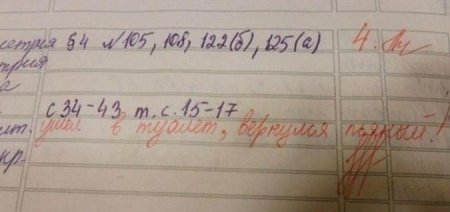 метрия §4 №105, 108, 122(б), 125(а) 4.
а
с 34-43, т. с. 15-17
ушел в туалет, вернулся пьяный!